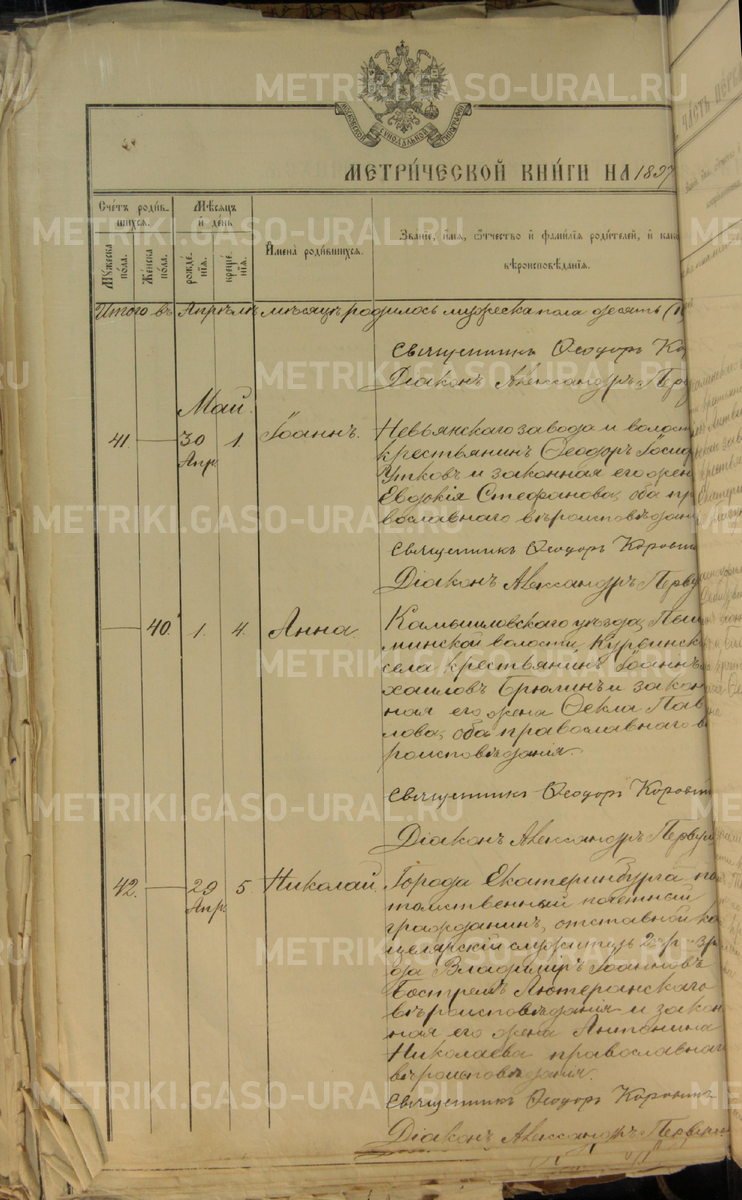 МОСКОВСКОЙ СѴНОДАЛЬНОЙ ТИПОГРАФІИ
ЧАСТЬ ПЕРВА
МЕТРИЧЕСКОЙ КНИГИ НА 1897
Счетъ родив-
шихся.
Мѣсяцъ
и день
Имена родившихся.
Званіе, имя, отчество и фамилія родителей, и како
вѣроисповѣданія.
Мужеска
пола.
Женска
пола.
рожде-
нія.
креще-
нія.
Итого въ Апрѣлѣ мѣсяцѣ родилось мужеска пола десять
Священникъ Ѳеодоръ Ко
Діаконъ Александръ Перву
Май.
41 30 Апр. 1. Іоаннъ.
Невьянскаго завода и волост
крестьянинъ Ѳеодоръ
Утковъ и законная его жен
Евдокія Стефанова, оба пр
вославнаго вѣроисповѣдан
Священникъ Ѳеодоръ Коровин
Діаконъ Александръ Перву
40. 1. 4. Анна.
Камышловскаго уѣзда, Пыш
минской волости,
села крестьянинъ Іоаннъ
хаиловъ Брюлинъ и закон
ная его жена Ѳекла Пав
лова, оба православнаго в
роисповѣданія.
Священникъ Ѳеодоръ Коровин
Діаконъ Александръ Первуш
42. 29 Апр. 5. Николай.
Города Екатеринбурга по
томственный почетный
гражданинъ, отставной ка
целярскій служитель 2го раз
да Владиміръ Іоанновъ
Бостремъ Лютеранскаго
вѣроисповѣданія и закон
ная его жена Антонина
Николаева православнаг
вѣроисповѣданія.
Священникъ Ѳеодоръ Коровинъ
Діаконъ Александръ Первуши
METRIKI.GASO-URAL.RU